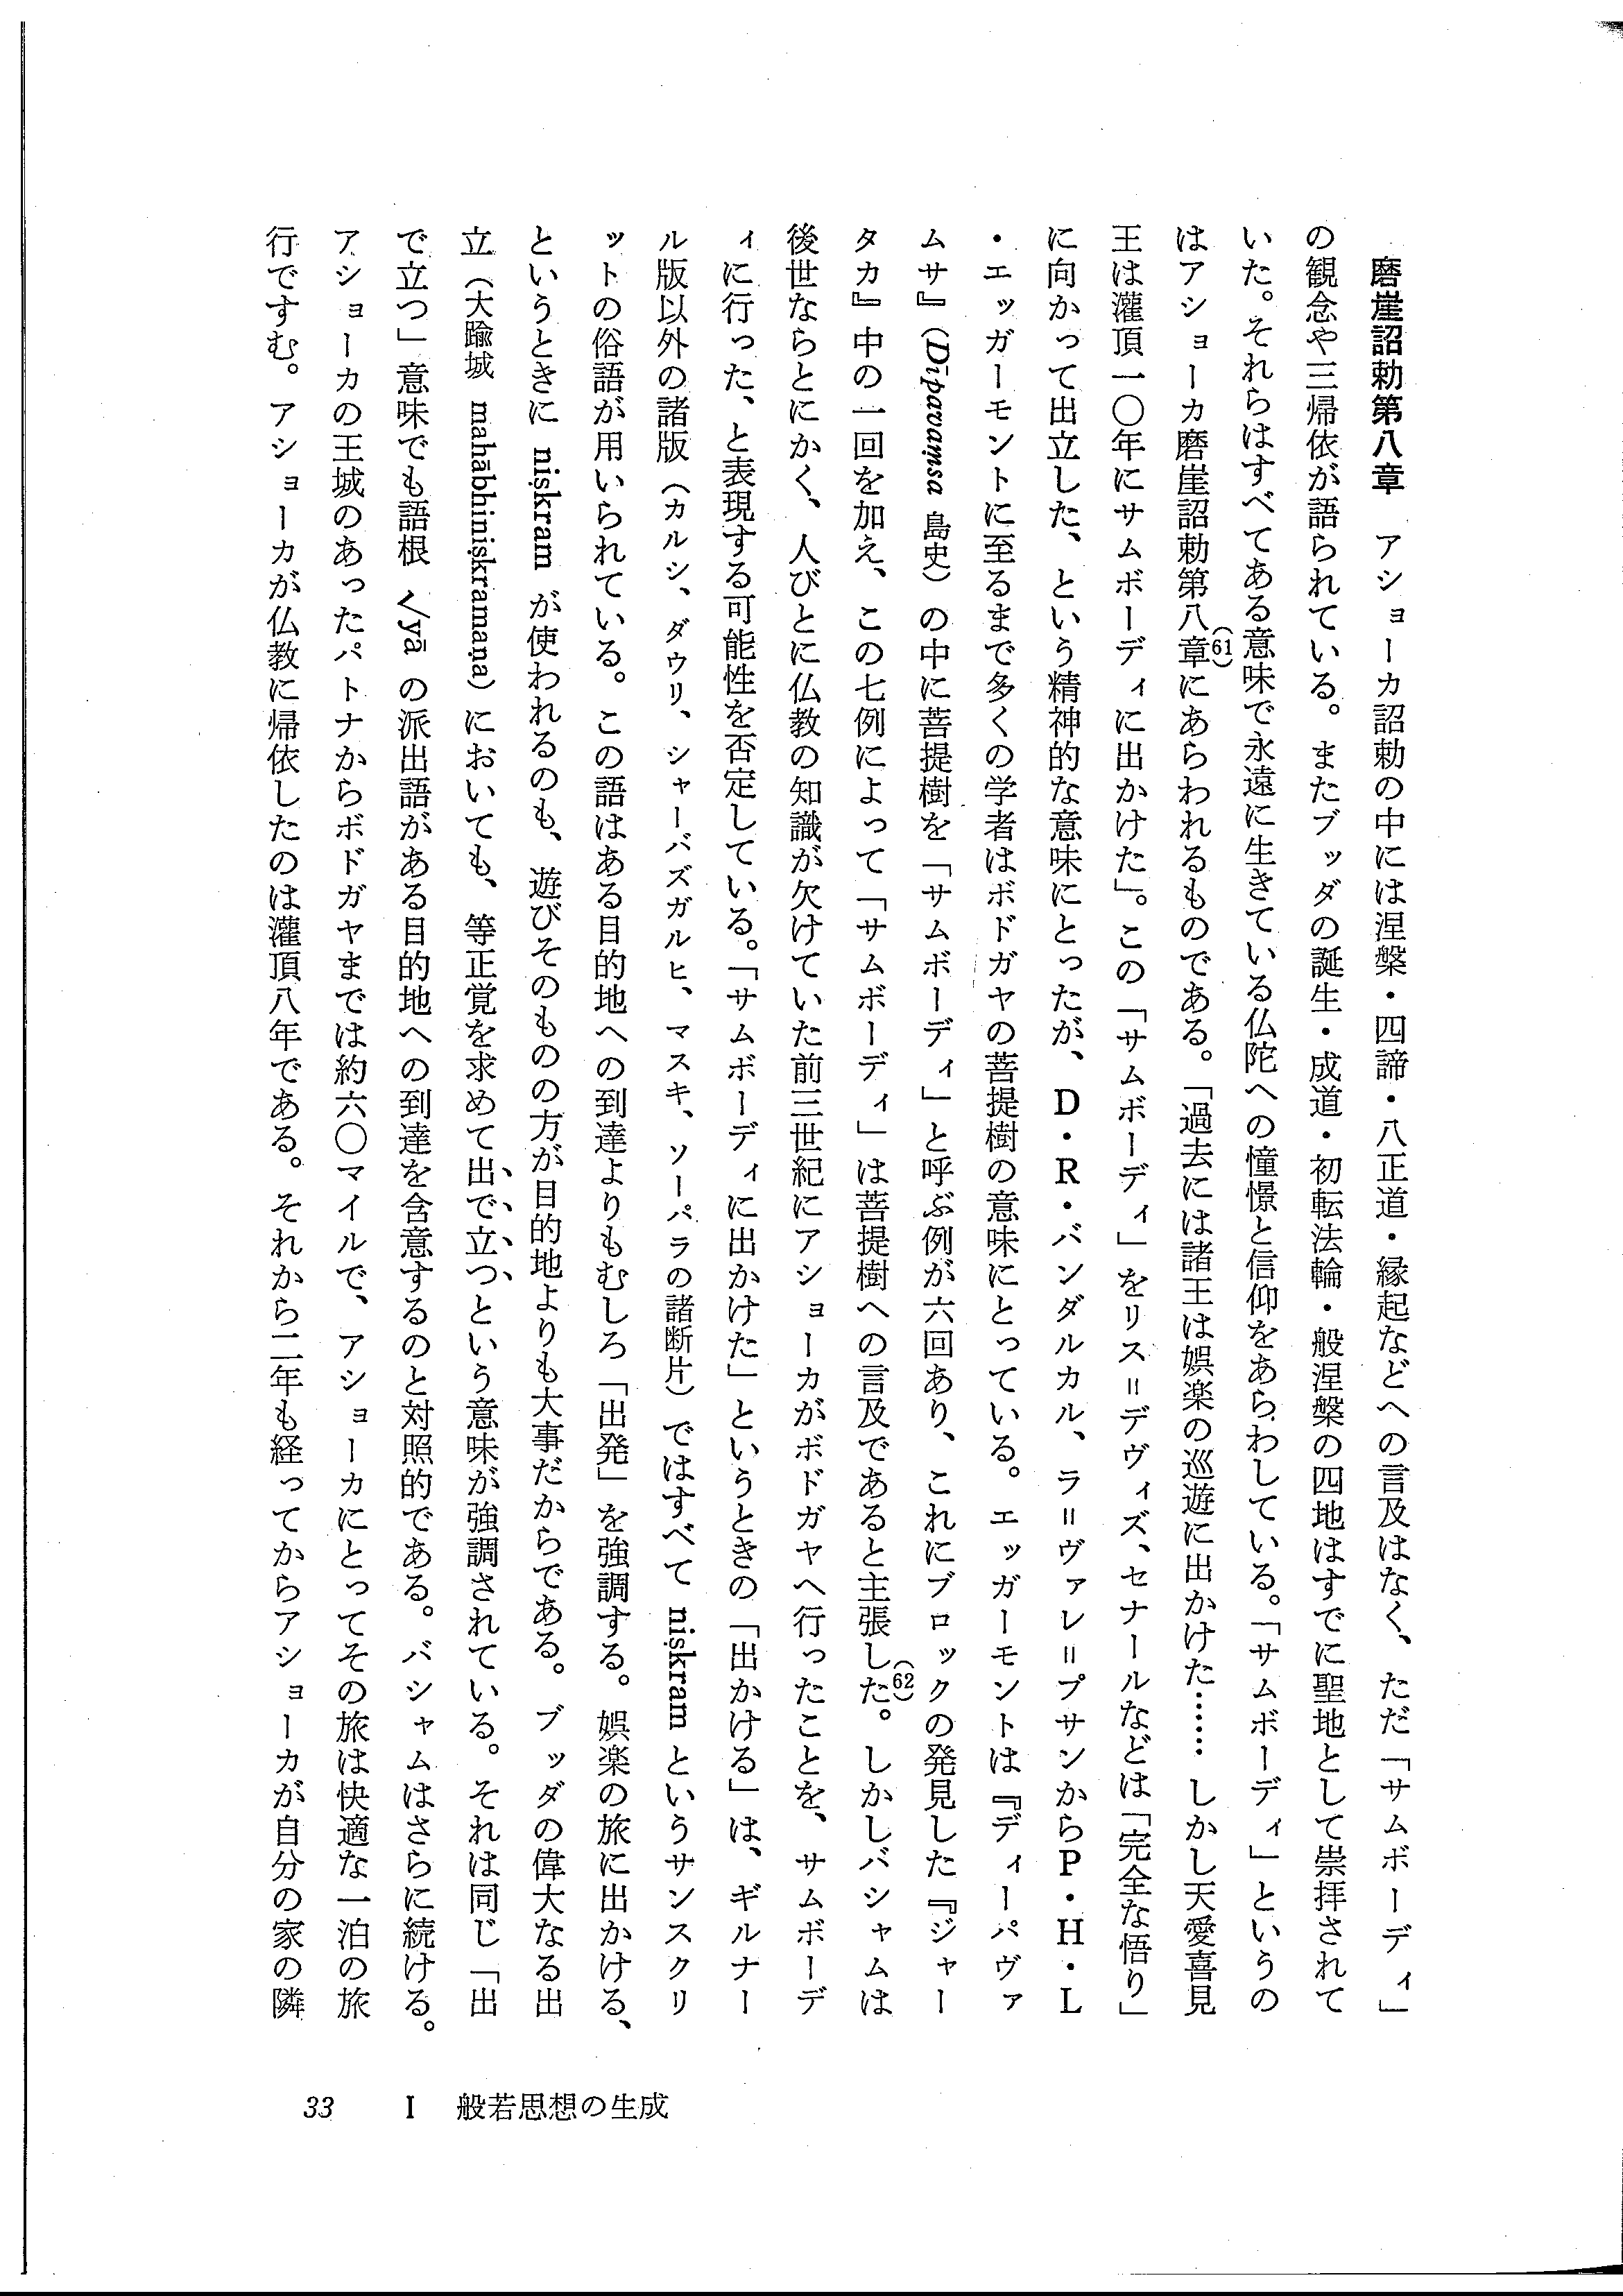 磨崖詔勅第八章　アショーカ詔勅の中には涅槃・四諦・八正道・縁起などへの言及はなく、ただ「サムボーディ」
の観念や三帰依が語られている。またブッダの誕生・成道・初転法輪・般涅槃の四地はすでに聖地として崇拝されて
いた。それらはすべてある意味で永遠に生きている仏陀への憧憬と信仰をあらわしている。「サムボーディ」というの
はアショーカ磨崖詔勅第八章(61)にあらわれるものである。「過去には諸王は娯楽の巡遊に出かけた……しかし天愛喜見
王は灌頂一〇年にサムボーディに出かけた」。この「サムボーディ」をリス＝デヴィズ、セナールなどは「完全な悟り」
に向かって出立した、という精神的な意味にとったが、D・R・バンダルカル、ラ＝ヴァレ＝プサンからP・H・L
・エッガーモントに至るまで多くの学者はボドガヤの菩提樹の意味にとっている。エッガーモントは『ディーパヴァ
ムサ』（Dīpavaṃsa 島史）の中に菩提樹を「サムボーディ」と呼ぶ例が六回あり、これにブロックの発見した『ジャー
タカ』中の一回を加え、この七例によって「サムボーディ」は菩提樹への言及であると主張した(62)。しかしバシャムは
後世ならとにかく、人びとに仏教の知識が欠けていた前三世紀にアショーカがボドガヤへ行ったことを、サムボーデ
ィに行った、と表現する可能性を否定している。「サムボーディに出かけた」というときの「出かける」は、ギルナー
ル版以外の諸版（カルシ、ダウリ、シャーバズガルヒ、マスキ、ソーパラの諸断片）ではすべて niṣkram というサンスクリ
ットの俗語が用いられている。この語はある目的地への到達よりもむしろ「出発」を強調する。娯楽の旅に出かける、
というときに niṣkram が使われるのも、遊びそのものの方が目的地よりも大事だからである。ブッダの偉大なる出
立（大踰城 mahābhiniṣkramaṇa）においても、等正覚を求めて出で立つという意味が強調されている。それは同じ「出
で立つ」意味でも語根 √yā の派出語がある目的地への到達を含意するのと対照的である。バシャムはさらに続ける。
アショーカの王城のあったパトナからボドガヤまでは約六〇マイルで、アショーカにとってその旅は快適な一泊の旅
行ですむ。アショーカが仏教に帰依したのは灌頂八年である。それから二年も経ってからアショーカが自分の家の隣
33　I　般若思想の生成